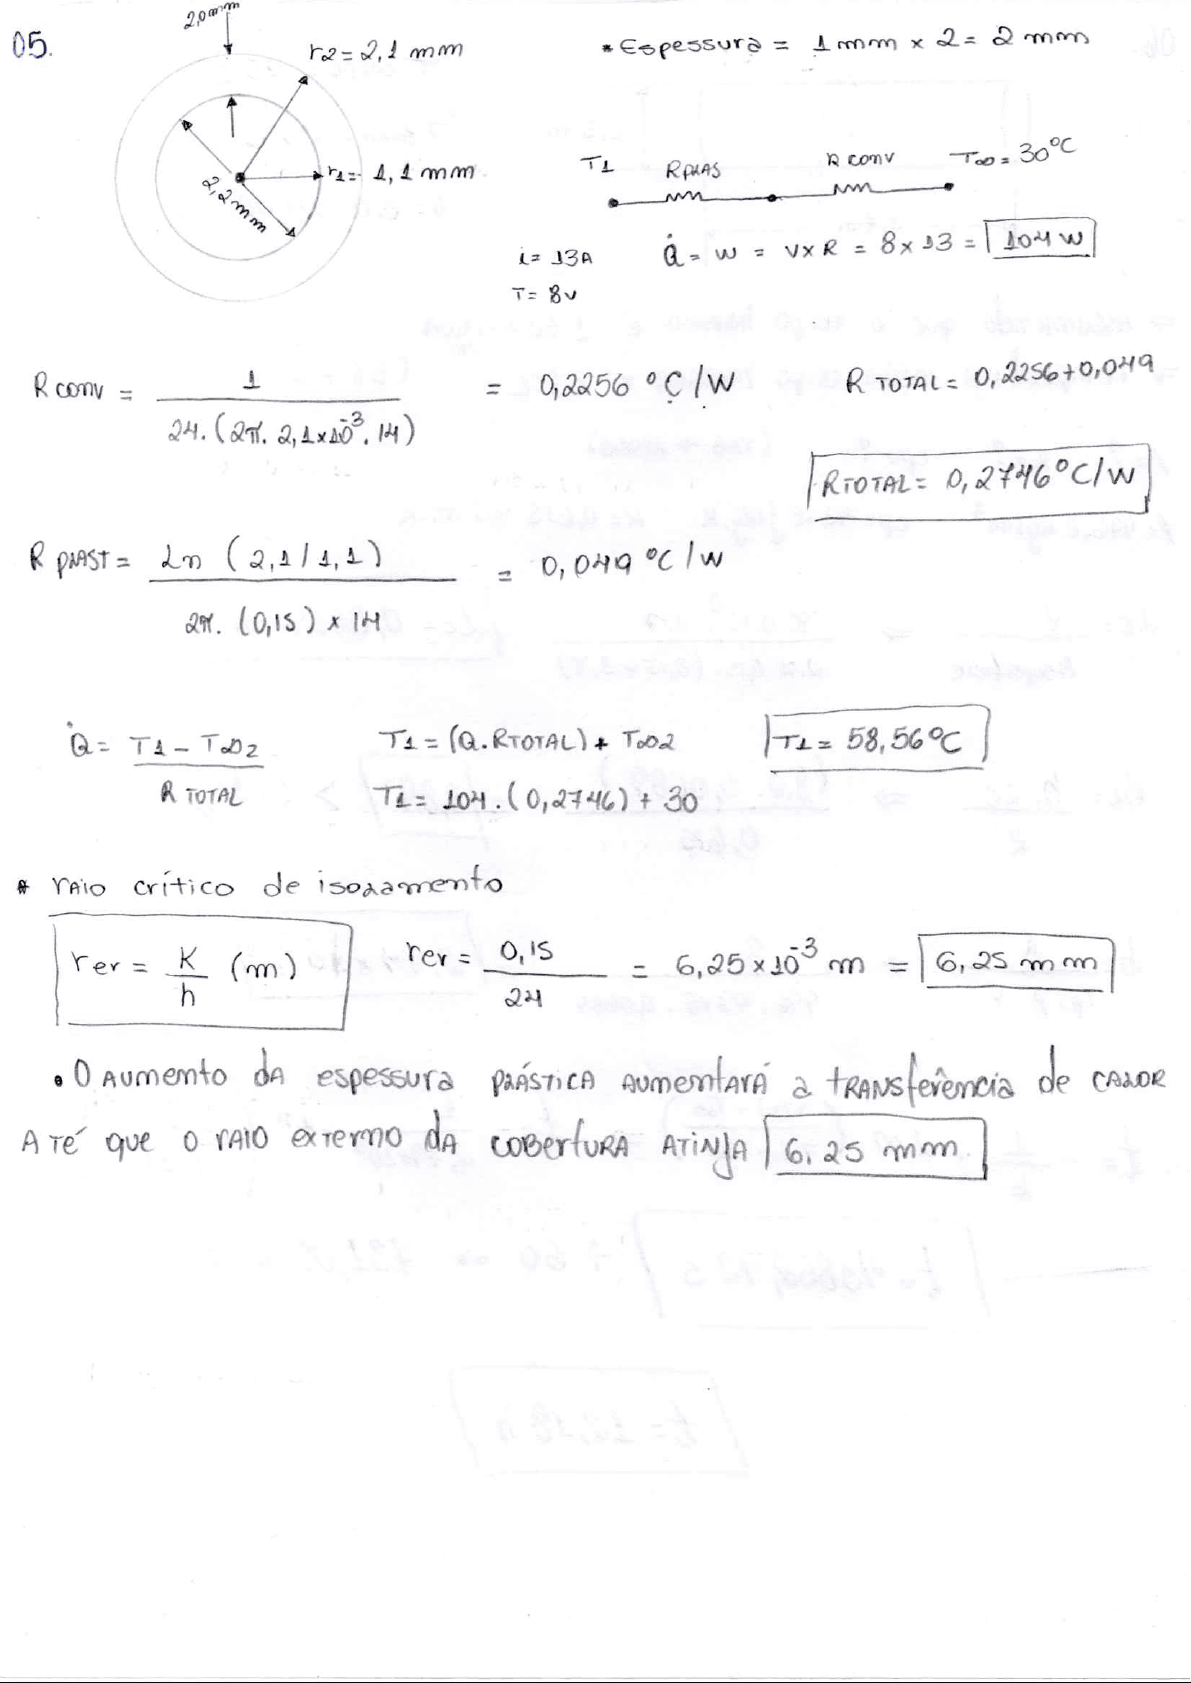 05.
2,0mm
r2 = 2,1 mm
* Espessura = 1mm x 2 = 2 mm
r1 = 1,1 mm
2,2mm
T1 Rplas R conv T∞ = 30°C
i = 13A
T = 8v
Q̇ = w = v x R = 8 x 13 = 104 w
R conv = 1 / 24.(2π. 2,1x10⁻³. 14) = 0,2256 °C/W
R TOTAL = 0,2256 + 0,049
R TOTAL = 0,2746 °C/W
R plast = Ln (2,1 / 1,1) / 2π. (0,15) x 14 = 0,049 °C/W
Q̇ = T1 - T∞2 / R TOTAL
T1 = (Q. RTOTAL) + T∞2
T1 = 58,56°C
T1 = 104. (0,2746) + 30
* raio crítico de isolamento
rcr = K / h (m)
rcr = 0,15 / 24 = 6,25 x 10⁻³ m = 6,25 mm
• O aumento da espessura plástica aumentará a transferência de calor
Até que o raio externo da cobertura atinja 6,25 mm